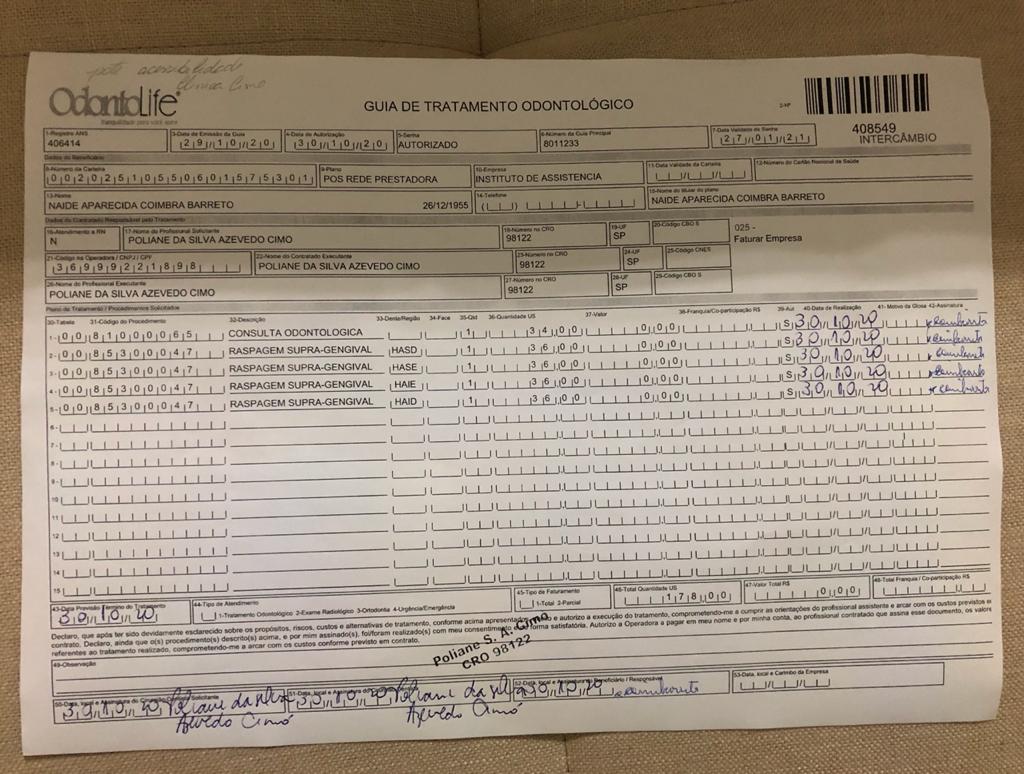 pote acessibilidade
Clinica Cimo
OdontoLife®
tranquilidade para você sorrir
GUIA DE TRATAMENTO ODONTOLÓGICO
2-Nº
408549
INTERCÂMBIO
1-Registro ANS 3-Data de Emissão da Guia 4-Data de Autorização 5-Senha 6-Número da Guia Principal 7-Data Validade da Senha
406414 29/10/20 30/10/20 AUTORIZADO 8011233 27/01/21
Dados do Beneficiário
8-Número da Carteira 9-Plano 10-Empresa 11-Data Validade da Carteira 12-Número do Cartão Nacional de Saúde
00202510550601575301 POS REDE PRESTADORA INSTITUTO DE ASSISTENCIA
13-Nome 14-Telefone 15-Nome do titular do plano
NAIDE APARECIDA COIMBRA BARRETO 26/12/1955 NAIDE APARECIDA COIMBRA BARRETO
Dados do Contratado Responsável pelo Tratamento
16-Atendimento a RN 17-Nome do Profissional Solicitante 18-Número no CRO 19-UF 20-Código CBO S
N POLIANE DA SILVA AZEVEDO CIMO 98122 SP
025 -
Faturar Empresa
21-Código na Operadora / CNPJ / CPF 22-Nome do Contratado Executante 23-Número no CRO 24-UF 25-Código CNES
36999221898 POLIANE DA SILVA AZEVEDO CIMO 98122 SP
26-Nome do Profissional Executante 27-Número no CRO 28-UF 29-Código CBO S
POLIANE DA SILVA AZEVEDO CIMO 98122 SP
Plano de Tratamento / Procedimentos Solicitados
30-Tabela 31-Código do Procedimento 32-Descrição 33-Dente/Região 34-Face 35-Qtd 36-Quantidade US 37-Valor 38-Franquia/Co-participação R$ 39-Aut 40-Data de Realização 41- Motivo da Glosa 42-Assinatura
1- 00 81000065 CONSULTA ODONTOLOGICA 1 34,00 0,00 S 30/10/20
2- 00 85300047 RASPAGEM SUPRA-GENGIVAL HASD 1 36,00 0,00 S 30/10/20
3- 00 85300047 RASPAGEM SUPRA-GENGIVAL HASE 1 36,00 0,00 S 30/10/20
4- 00 85300047 RASPAGEM SUPRA-GENGIVAL HAIE 1 36,00 0,00 S 30/10/20
5- 00 85300047 RASPAGEM SUPRA-GENGIVAL HAID 1 36,00 0,00 S 30/10/20
6-
7-
8-
9-
10-
11
12
13
14
15
43-Data Previsão Término do Tratamento 44-Tipo de Atendimento 45-Tipo de Faturamento 46-Total Quantidade US 47-Valor Total R$ 48-Total Franquia / Co-participação R$
30/10/20 1-Tratamento Odontológico 2-Exame Radiológico 3-Ortodontia 4-Urgência/Emergência 1-Total 2-Parcial 178,00 0,00
Declaro, que após ter sido devidamente esclarecido sobre os propósitos, riscos, custos e alternativas de tratamento, conforme acima apresentados, e autorizo a execução do tratamento, comprometendo-me a cumprir as orientações do profissional assistente e arcar com os custos previstos em
contrato. Declaro, ainda que o(s) procedimento(s) descrito(s) acima, e por mim assinado(s), foi/foram realizado(s) com meu consentimento e de forma satisfatória. Autorizo a Operadora a pagar em meu nome e por minha conta, ao profissional contratado que assina esse documento, os valores
referentes ao tratamento realizado, comprometendo-me a arcar com os custos conforme previsto em contrato.
Poliane S. A. Cimo
CRO 98122
49-Observação
50-Data, local e Assinatura do Solicitante 51-Data, local e 52-Data, local e Assinatura do Beneficiário / Responsável 53-Data, local e Carimbo da Empresa
30/10/20 Poliane da silva 30/10/20 Poliane da silva 30/10/20
Azevedo Cimó Azevedo Cimó